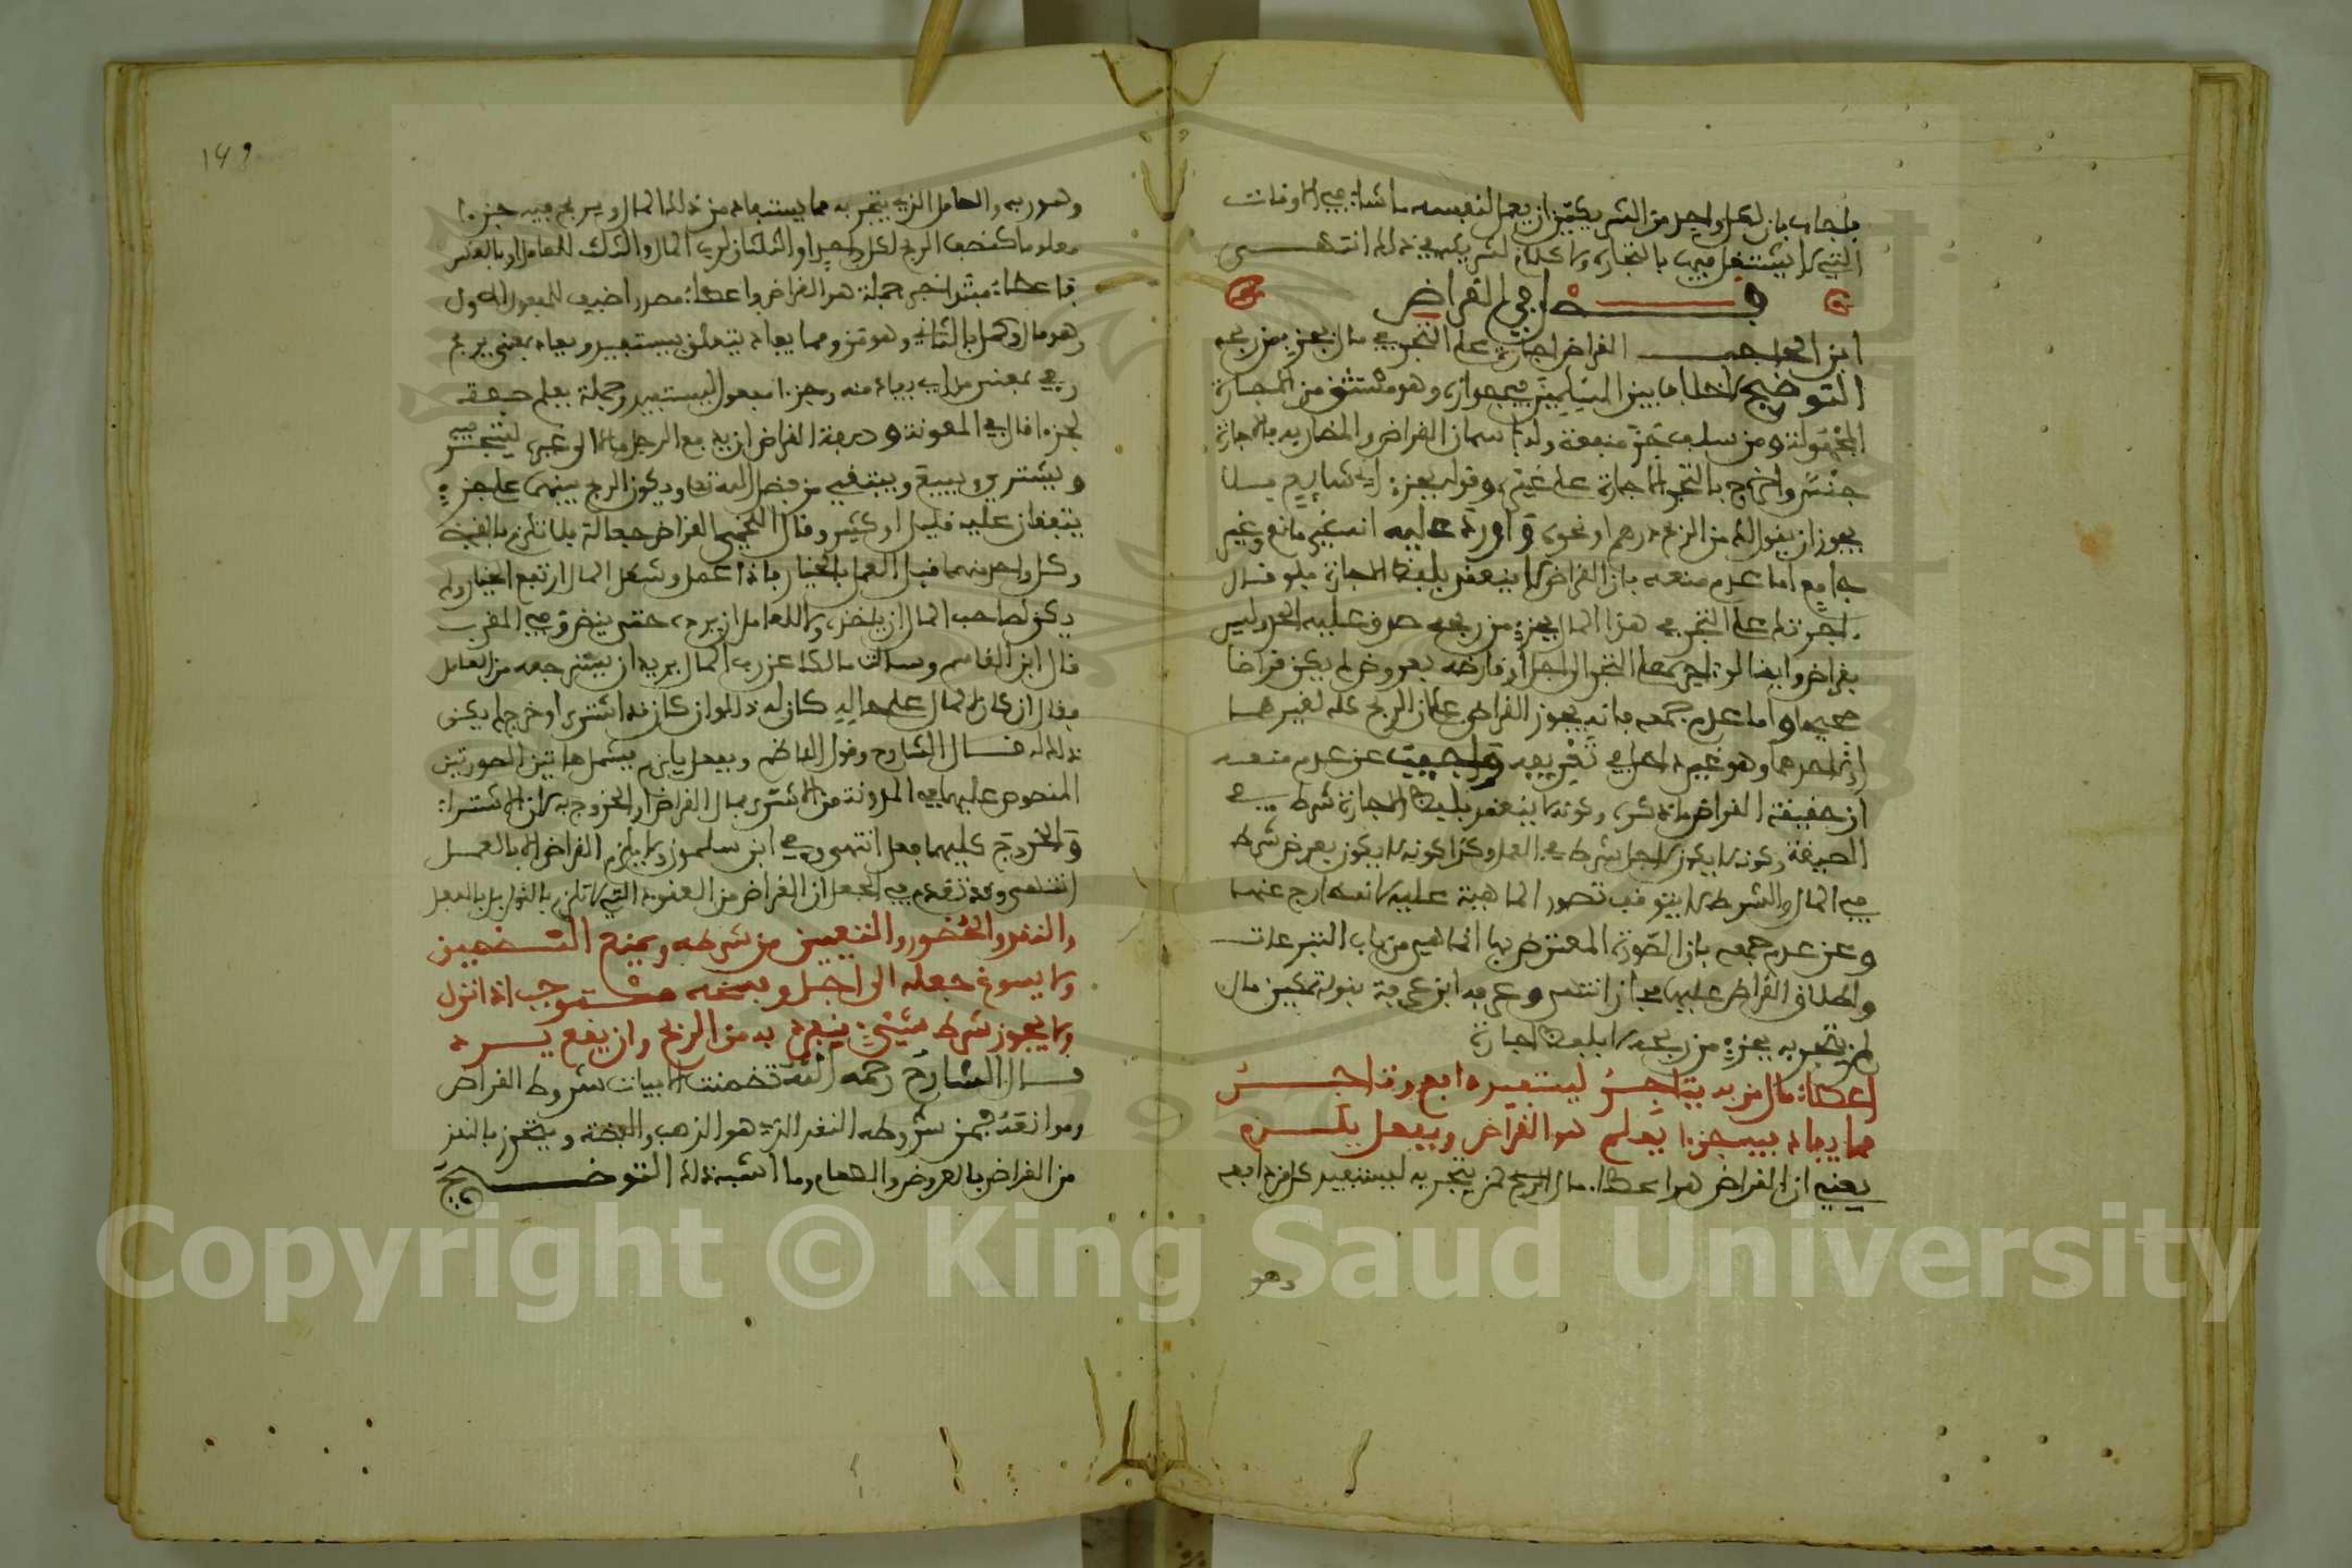 فاجاب بان لكل واحد من الشريكين ان يعمل لنفسه ما شاء في الاوقات
التي لا يشتغل فيها بالتجارة ولا كلام لشريكه في ذلك انتهى
فصل في القراض
ابن الحاجب القراض اجارة على التجر في مال بجزء من ربحه
التوضيح لا خلاف بين المسلمين في جوازه وهو مستثنى من الاجارة
المجهولة ومن سلف جر منفعة وله اسمان القراض والمضاربة فالاجارة
جنس واخرج بالتجر الاجارة على غيره وقوله بجزء اي شايع فلا
يجوز ان يقول لك من الربح درهم او نحوه واورد عليه انه غير مانع وغير
جامع اما عدم منعه فان القراض لا ينعقد بلفظ الاجارة فلو قال
اجرتك على التجر في هذا المال بجزء من ربحه صدق عليه الحد وليس
بقراض وايضا لو اجره على التجر الى اجل او قارضه بعروض لم يكن قراضا
صحيحا واما عدم جمعه فانه يجوز القراض على ان الربح كله لغيرهما
او لاحدهما وهو غير داخل في تعريفه واجيب عن عدم منعه
ان حقيقة القراض ما ذكره وكونه لا ينعقد بلفظ الاجارة شرط في
الصيغة وكونه لا يكون لاجل شرط في العمل وكذا كونه لا يكون بعرض شرط
في المال والشرط لا يتوقف تصور الماهية عليه لانه خارج عنها
وعن عدم جمعه بان الصورة المعترض بها انما هي من باب التبرعات
واطلاق القراض عليها مجاز انتهى وعرفه ابن عرفة بقوله تمكين مال
لمن يتجر به بجزء من ربحه لا بلفظ اجارة
اعطاء مال من به يتاجر ليستفيد دافع وتاجر
مما يفاد فيه جزءا يعلم هو القراض وبفعل يلزم
يعني ان القراض هو اعطاء مال الربح لمن يتجر به ليستفيد كل من دافعه
وهو
149
وهو ربه والعامل الذي يتجر به مما يستفاد من ذلك المال ويربح فيه جزءا
معلوما كنصف الربح لكل واحد او الثلثان لرب المال والثلث للعامل او بالعكس
فاعطاء مبتدا خبره جملة هو القراض واعطاء مصدر اضيف للمفعول الاول
وهو مال وكمل بالثاني وهو من ومما يفاد يتعلق بيستفيد ويفاد بمعنى يربح
وفي بمعنى من اي يفاد منه وجزءا مفعول ليستفيد وجملة يعلم صفة
لجزءا قال في المعونة وصفة القراض ان يدفع الرجل مالا الى غيره ليتجر فيه
ويشتري ويبيع ويبتغي من فضل الله تعالى ويكون الربح بينهما على جزء
يتفقان عليه قليل او كثير وقال اللخمي القراض جعالة فلا تلزم بالعقد
وكل واحد منهما قبل العمل بالخيار فاذا عمل وشغل المال ارتفع الخيار ولم
يكن لصاحب المال ان ياخذه ولا للعامل ان يرده حتى ينض وفي المقرب
قال ابن القاسم وسالت مالكا عن رب المال يريد ان يسترجعه من العامل
فقال ان كان المال على حاله كان له ذلك وان كان قد اشترى او خرج لم يكن
ذلك له قال الشارح وقول الناظم وبفعل يلزم يشمل هاتين الصورتين
المنصوص عليهما في المدونة من الاشترى بمال القراض او الخروج به لان الاشتراء
والخروج كليهما فعل انتهى وفي ابن سلمون ولا يلزم القراض الا بالعمل
انتهى وقد تقدم في الجعل ان القراض من العقود التي لا تلزم بالقول بل بالفعل
والنقد والحضور والتعيين من شرطه ويمنع التضمين
ولا يسوغ جعله الى اجل وفسخه مستوجب اذا نزل
ولا يجوز شرط شيء ينفرد به من الربح وان يقع يرد
قال الشارح رحمه الله تضمنت الابيات شروط القراض
وموانعه فمن شروطه النقد الذي هو الذهب والفضة ويتحرز بالنقد
من القراض بالعروض والطعام وما اشبه ذلك التوضيح
Copyright © King Saud University